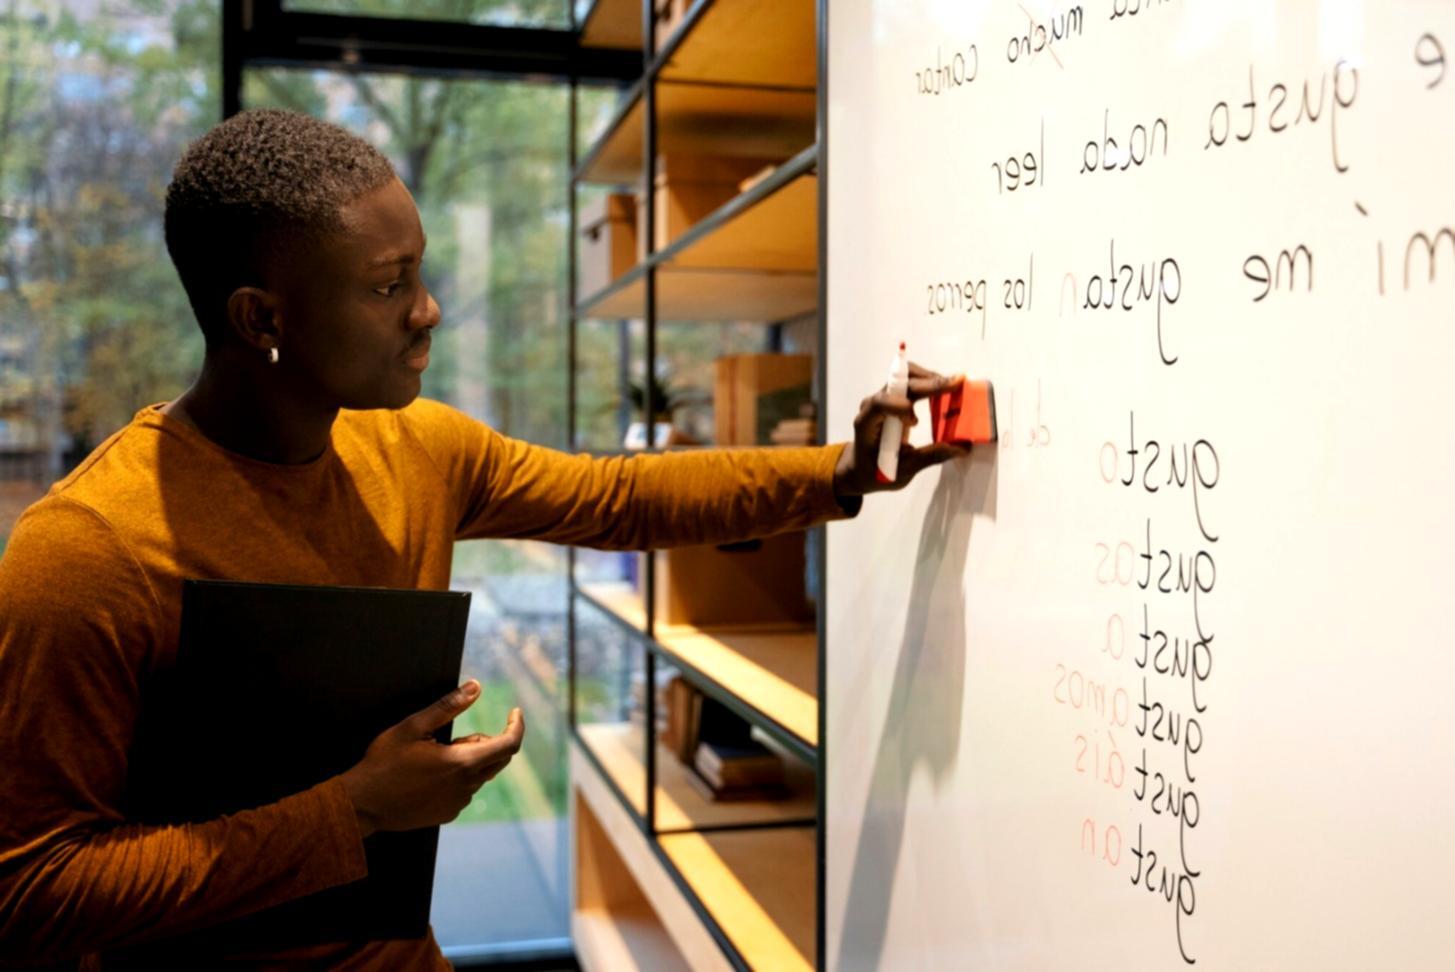 mucho cantar
e gusta nada leer
mí me gustan los perros
de la
gusto
gustas
gusta
gustamos
gustáis
gustan